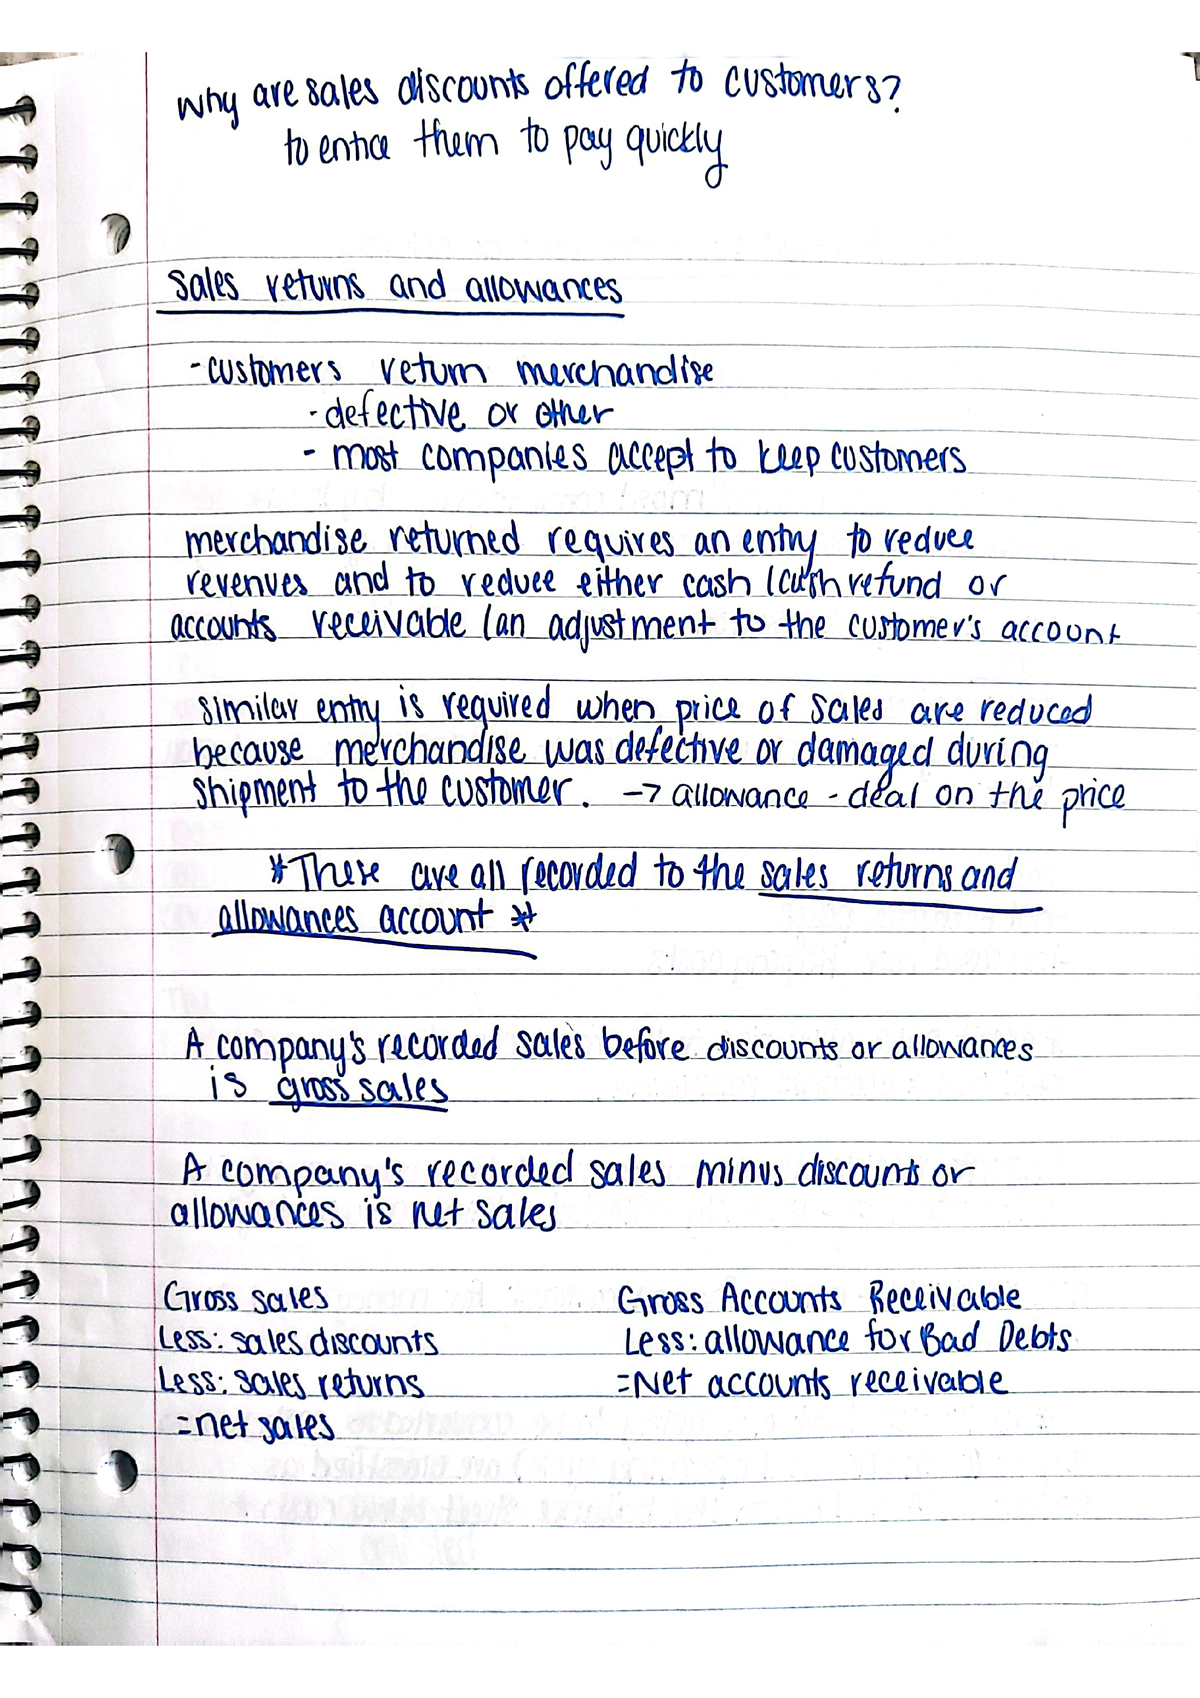 why are sales discounts offered to customers?
to entice them to pay quickly
sales returns and allowances
- customers return merchandise
- defective or other
- most companies accept to keep customers
merchandise returned requires an entry to reduce
revenues and to reduce either cash (cash refund or
accounts receivable (an adjustment to the customer's account
similar entry is required when price of sales are reduced
because merchandise was defective or damaged during
shipment to the customer. → allowance - deal on the price
*These are all recorded to the sales returns and
allowances account *
A company's recorded sales before discounts or allowances
is gross sales
A company's recorded sales minus discounts or
allowances is net sales
Gross sales
Less: sales discounts
Less: sales returns
= net sales
Gross Accounts Receivable
Less: allowance for Bad Debts
= Net accounts receivable